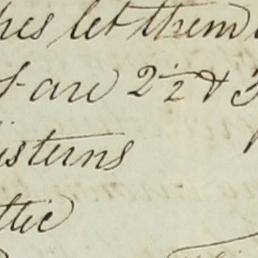 hes let them
are 2½ & 3
isterns
ttic